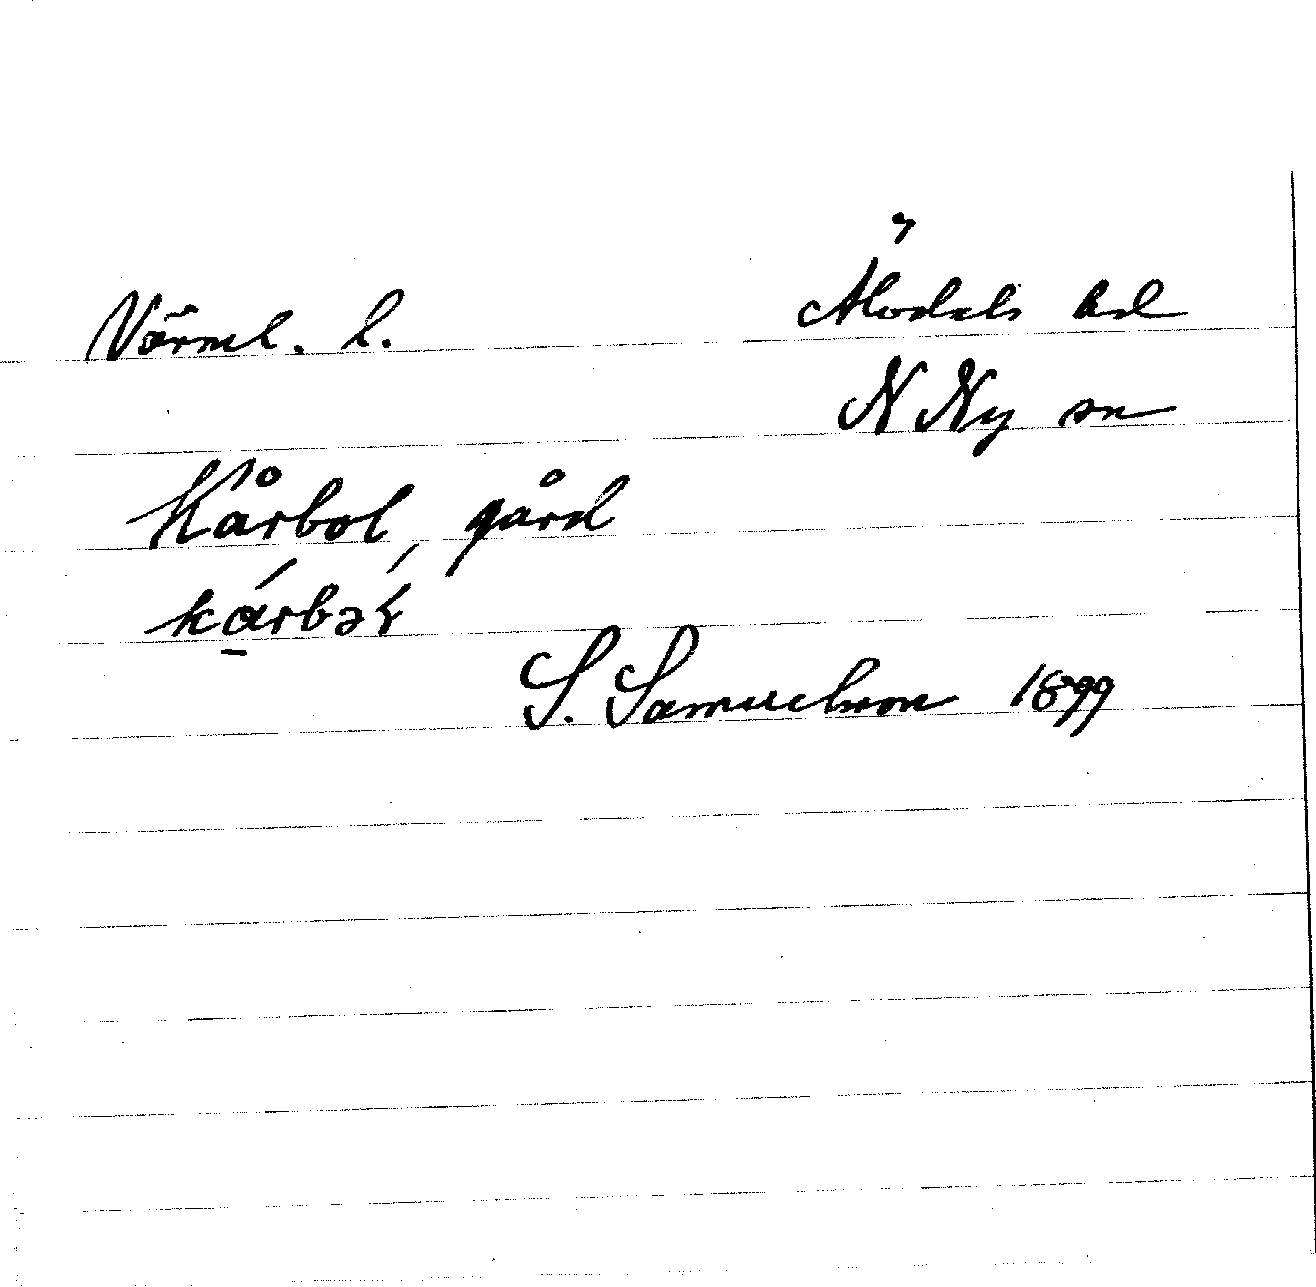 Värml. l. Älvdals hd
N Ny sn
Kårbol, gård
S. Samuelsson 1899